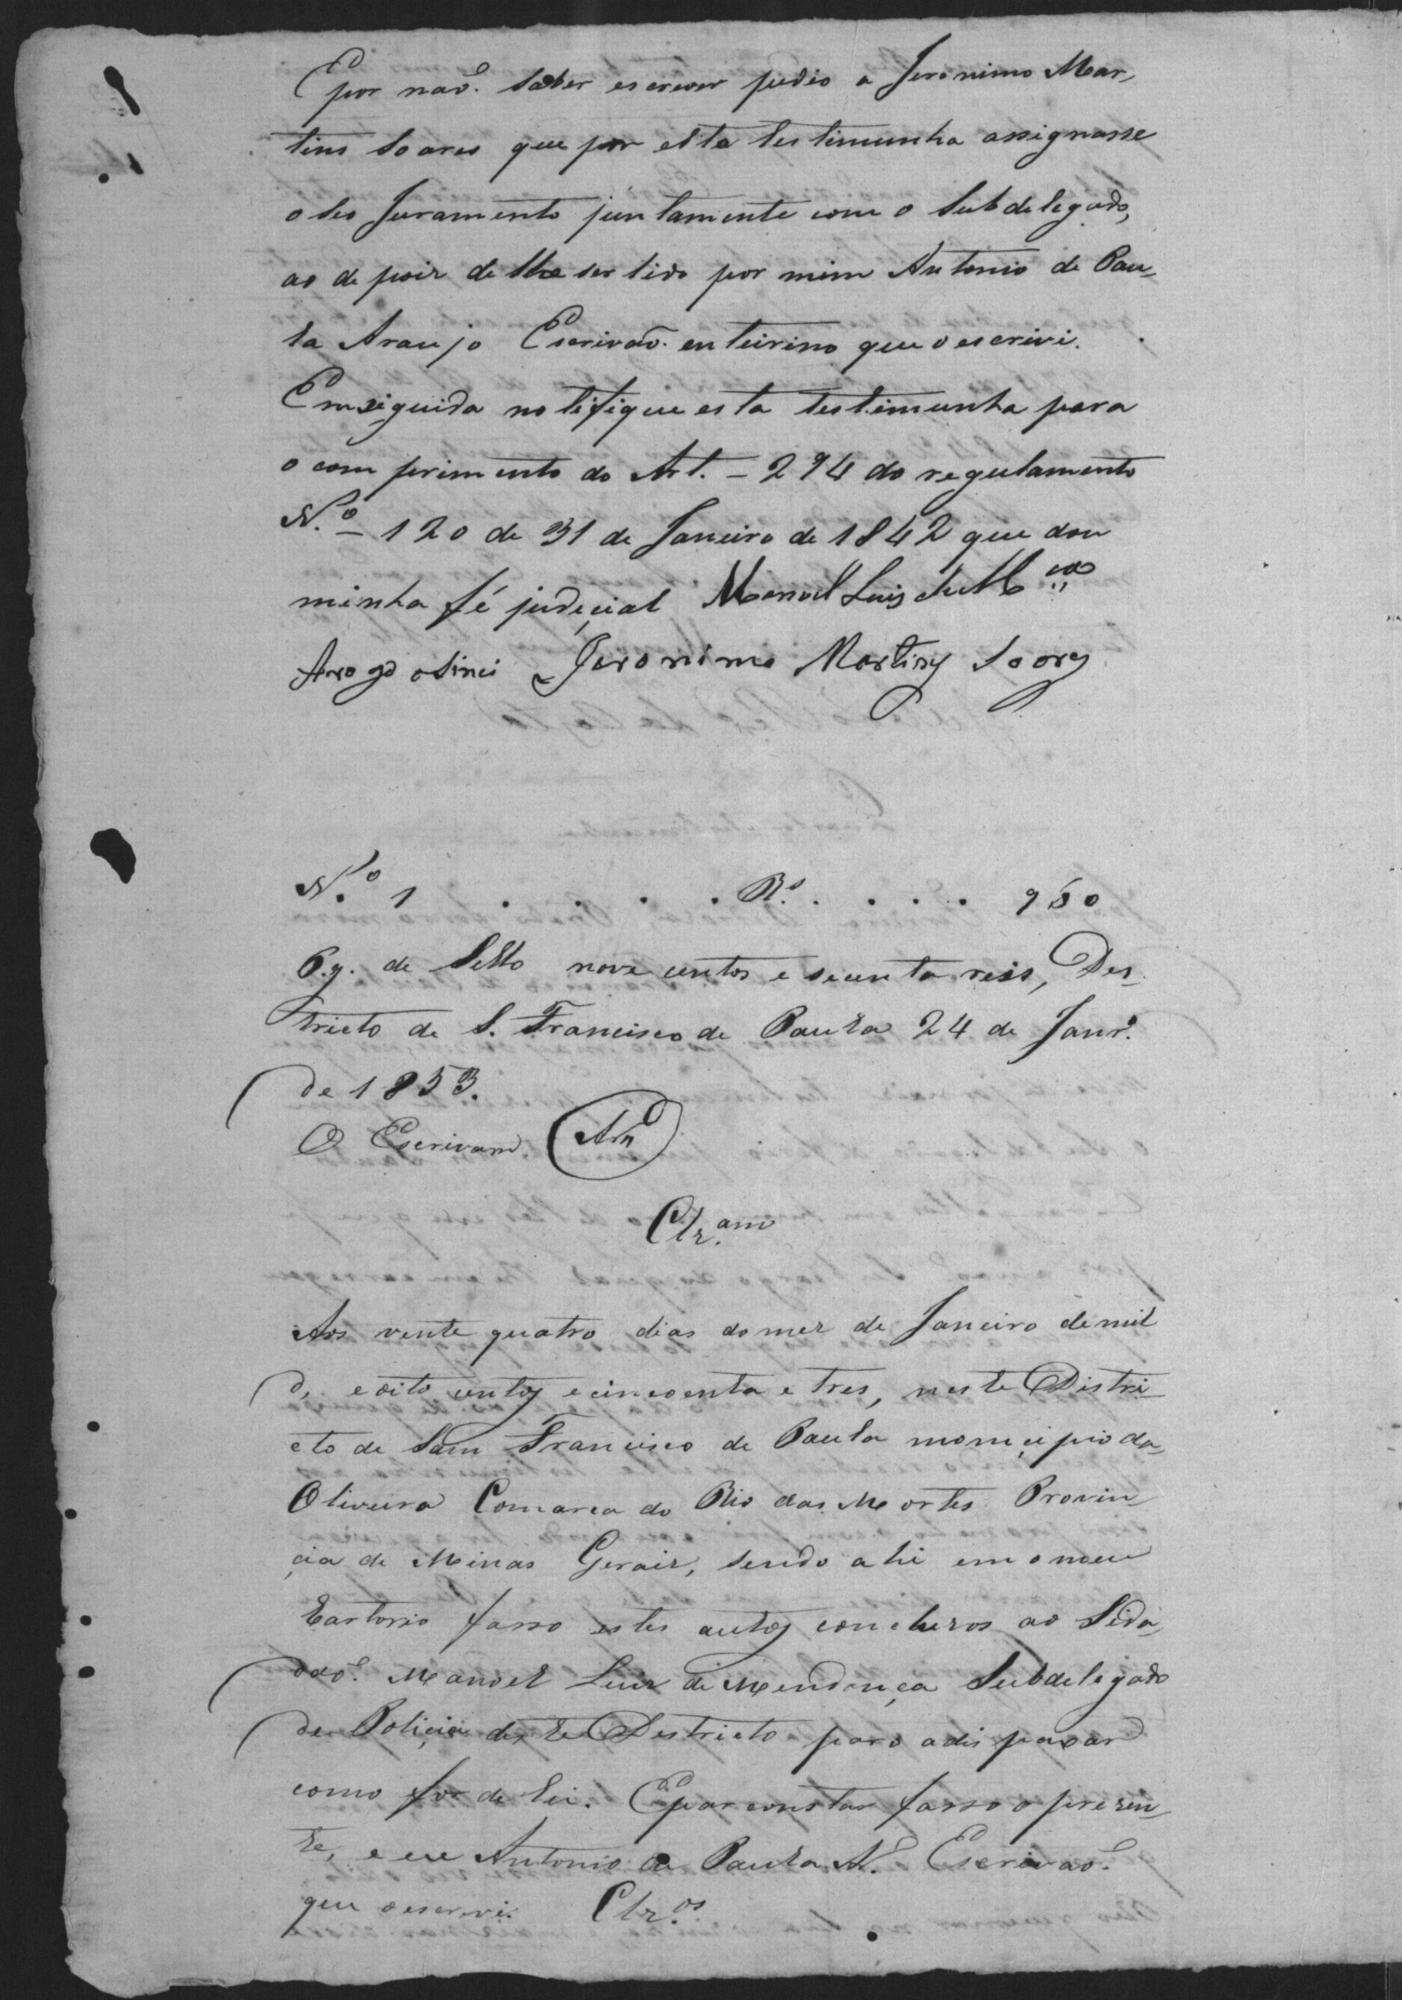 E por naõ. saber escrever pedio a Jeronimo Mar,
tins Soares que por esta testimunha assignasse
o seo Juramento juntamente com o Subdelegado,
ao depoiz de lhe ser lido por mim Antonio de Pau,
la Araujo Escrivaõ. enteirino que o escrivi.
Emseguida notifique esta testemunha para
o comprimento do Art. - 294 do regulamento
N.º - 120 de 31 de Janeiro de 1842 que dou
minha fé judiçial Manoel Luis de M.ça
Arogo osinei Jeronimo Martins Soares
N.º 1 . . . . R.s . . . . 960
P.g. de Sello nove centos e secenta reis, Des
tricto de S. Francisco de Paula 24 de Janr.º
de 1853.
O Escrivam. Ar.º
Clz.am
Aos vente quatro dias do mez de Janeiro de mil
e oito centos e cincoenta e tres, neste Distri-
cto de Sam Francisco de Paula moniçipio da
Oliveira Comarca do Rio das Mortes Provin
çia de Minas Geraiz, sendo ahi em o meu
Cartorio fasso estes autos concluzos ao Sida,
daõ. Manoel Luiz de Mendonça Subdelegado
de Poliçia deste Destricto para adispaxar
como for de lei. E par constar fasso o prezen,
te, e eu Antonio de Paula A.º Escrivaõ.
que o escrevi. Clz.os